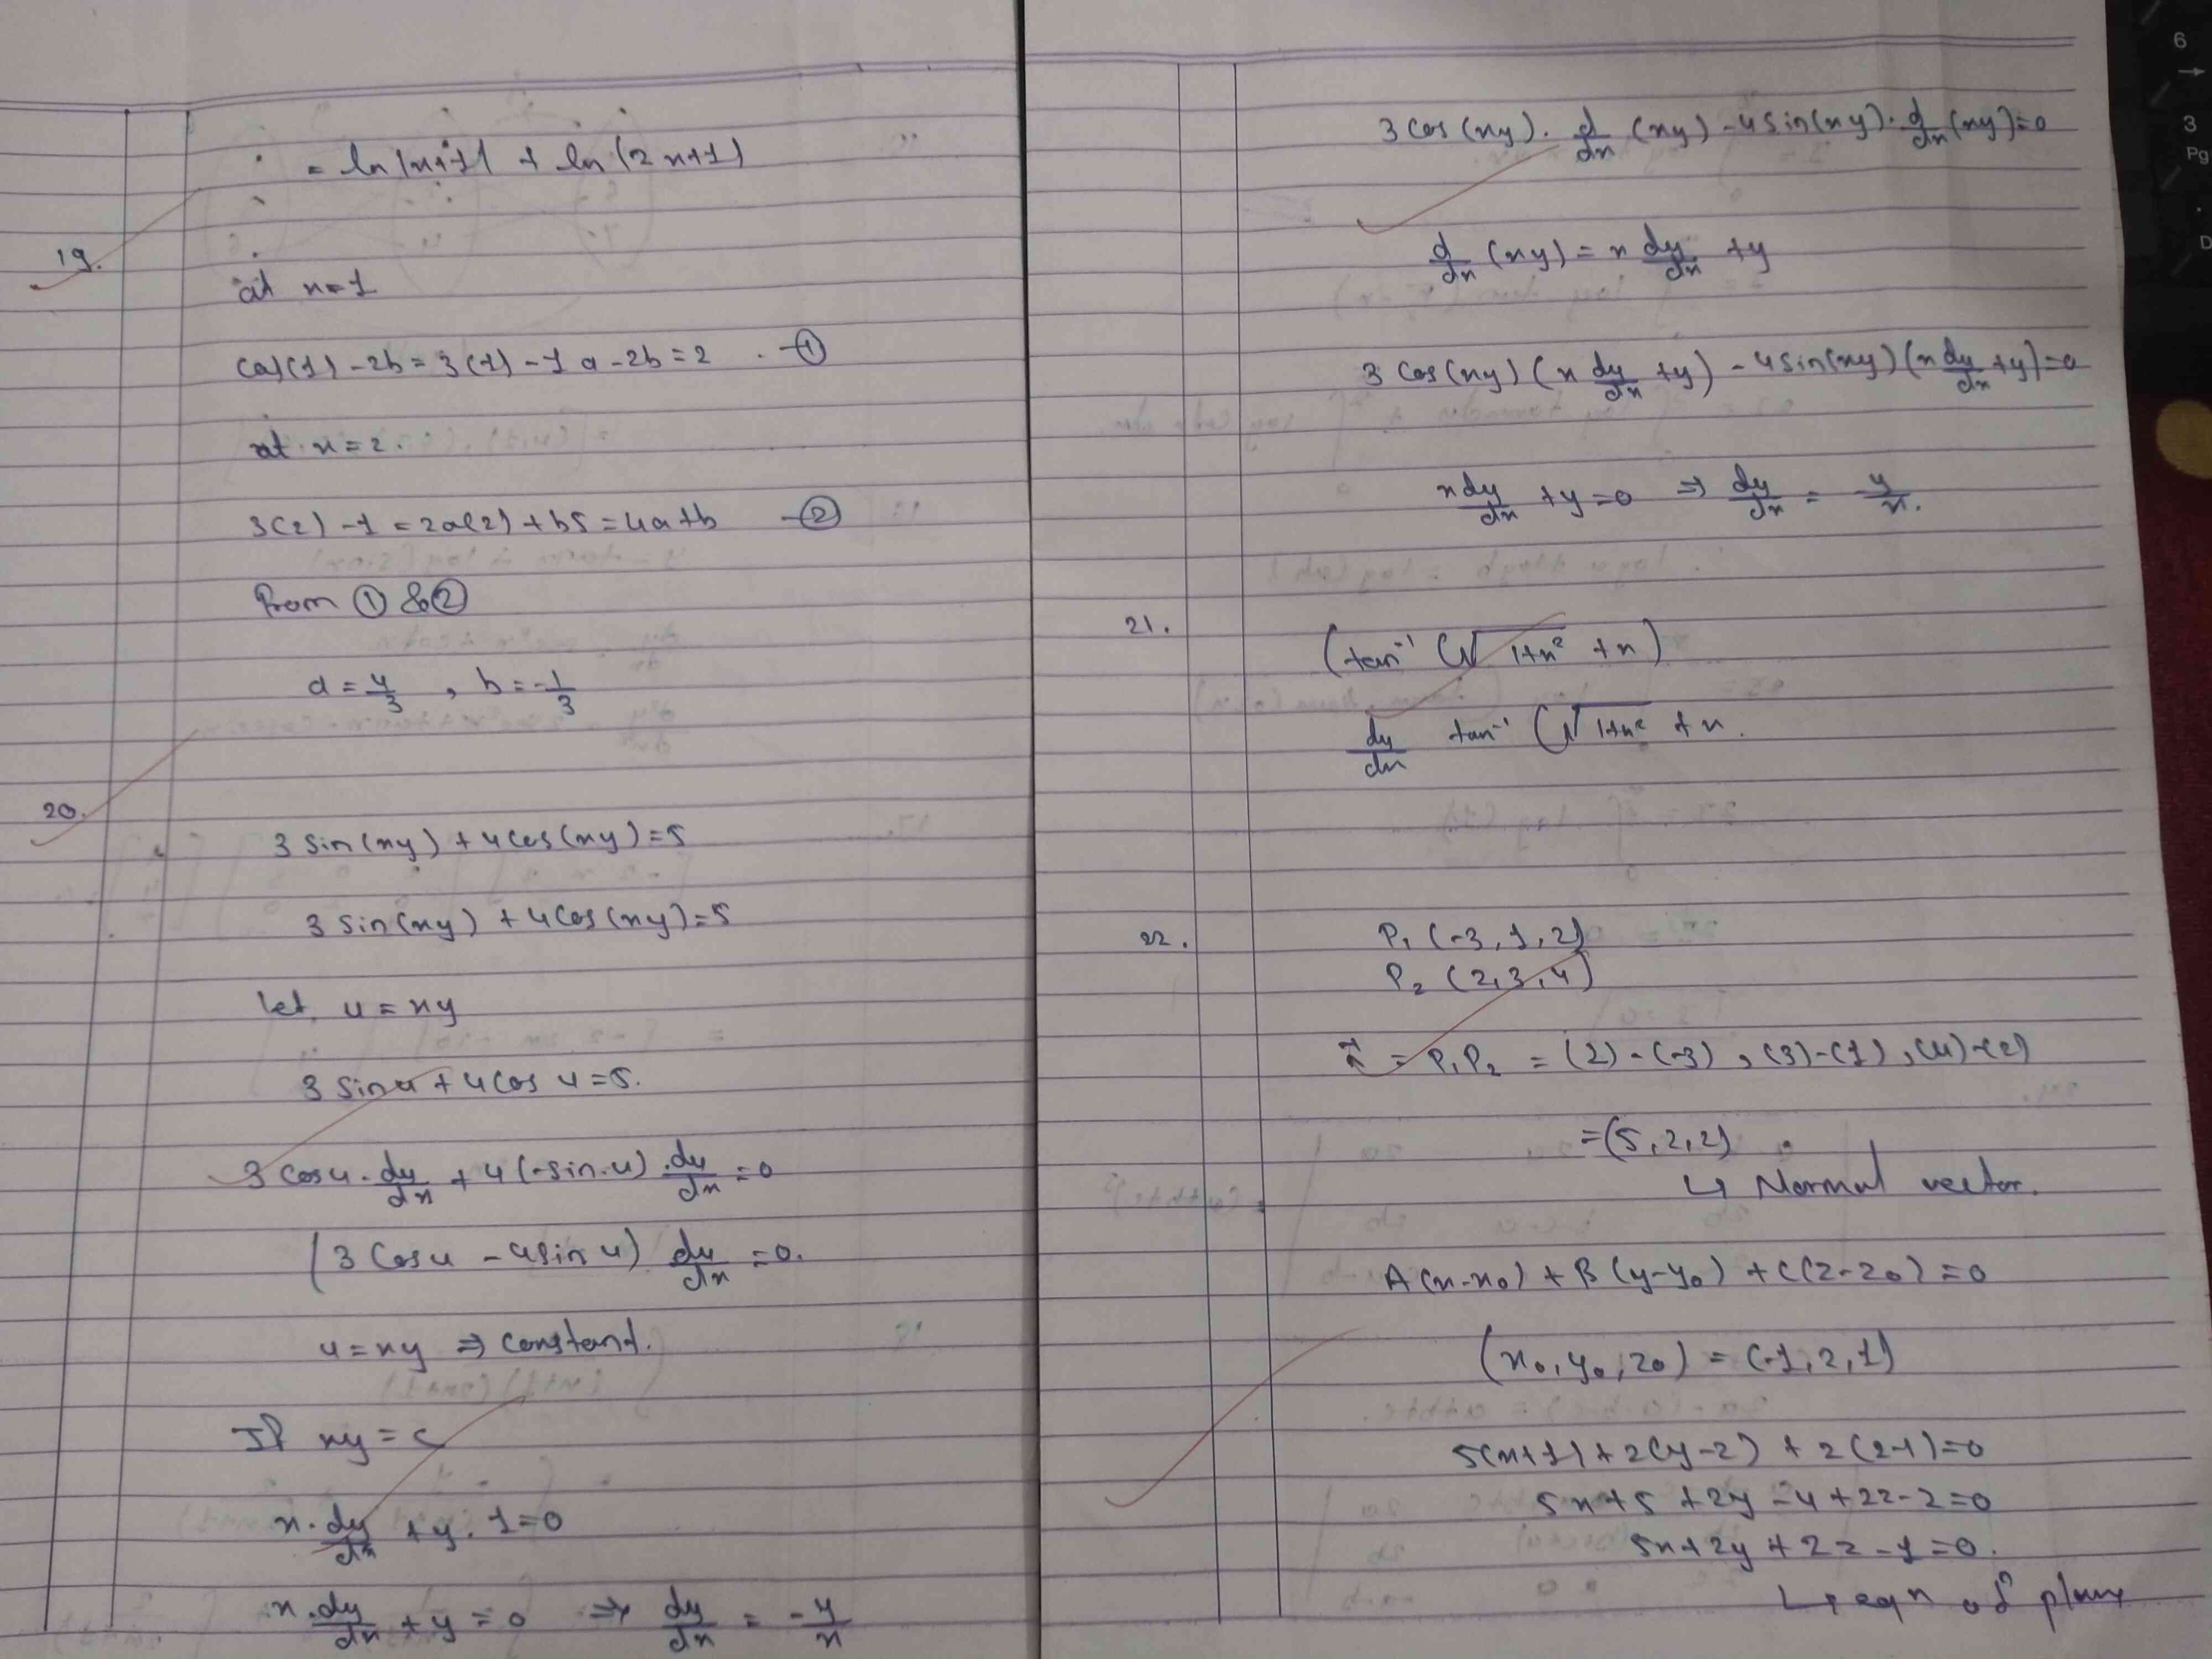 = ln|x+1| + ln(2x+1)
19.
at x=1
(a)(1) - 2b = 3(1) - 1 a - 2b = 2 - ①
at x = 2.
3(2) - 1 = 2a(2) + b5 = 4a+b - ②
From ① & ②
a = 4/3 , b = -1/3
20.
3 sin(xy) + 4cos(xy) = 5
3 sin(xy) + 4cos(xy) = 5
let, u = xy
3 sin u + 4 cos u = 5.
3 cos u . du/dx + 4(-sin u) . du/dx = 0
(3 cos u - 4sin u) du/dx = 0.
u = xy ⇒ constant.
If xy = c
x . dy/dx + y . 1 = 0
x . dy/dx + y = 0 ⇒ dy/dx = -y/x
3 cos(xy) . d/dx (xy) - 4 sin(xy) . d/dx (xy) = 0
d/dx (xy) = x dy/dx + y
3 cos(xy) (x dy/dx + y) - 4sin(xy) (x dy/dx + y) = 0
x dy/dx + y = 0 ⇒ dy/dx = -y/x.
21.
(tan⁻¹ (√1+x² + x)
dy/dx tan⁻¹ (√1+x² + x.
22.
P₁ (-3, 1, 2)
P₂ (2, 3, 4)
= P₁P₂ = (2) - (-3) , (3) - (1) , (4) - (2)
= (5, 2, 2)
↳ Normal vector.
A(x-x₀) + B(y-y₀) + C(z-z₀) = 0
(x₀, y₀, z₀) = (-1, 2, 1)
5(x+1) + 2(y-2) + 2(z-1) = 0
5x + 5 + 2y - 4 + 2z - 2 = 0
5x + 2y + 2z - 1 = 0.
↳ eqn of plane
6
3
Pg